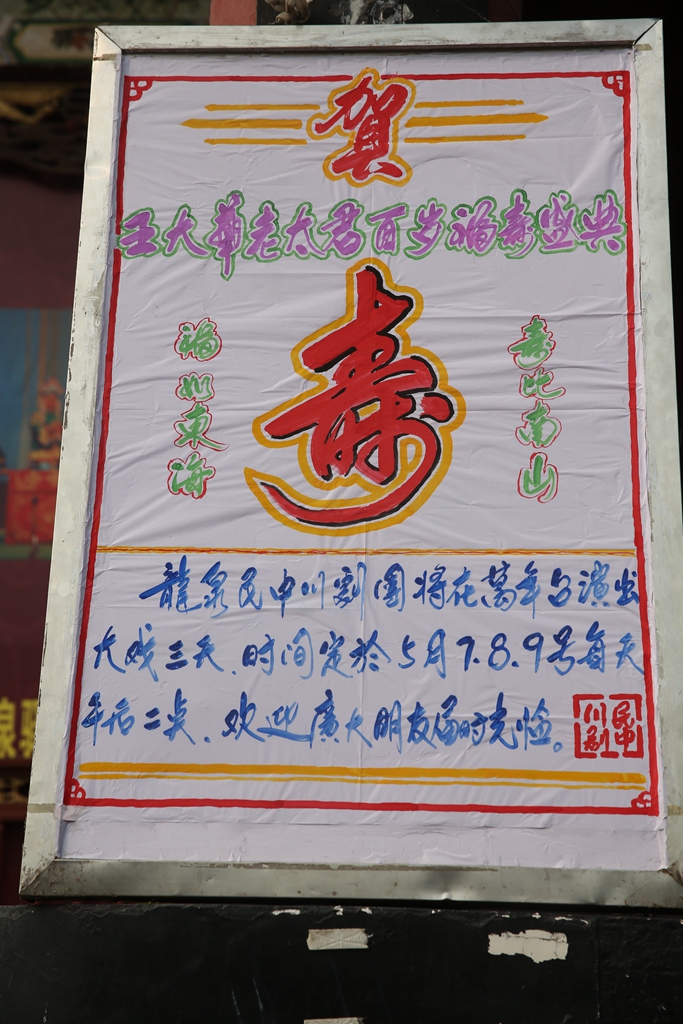 贺
王大華老太君百岁福寿盛典
福如東海
寿
寿比南山
龍泉民中川剧團将在萬年台演出
大戏三天,时间定於5月7.8.9号每天
午后二点.欢迎廣大朋友届时光临。
民中川剧